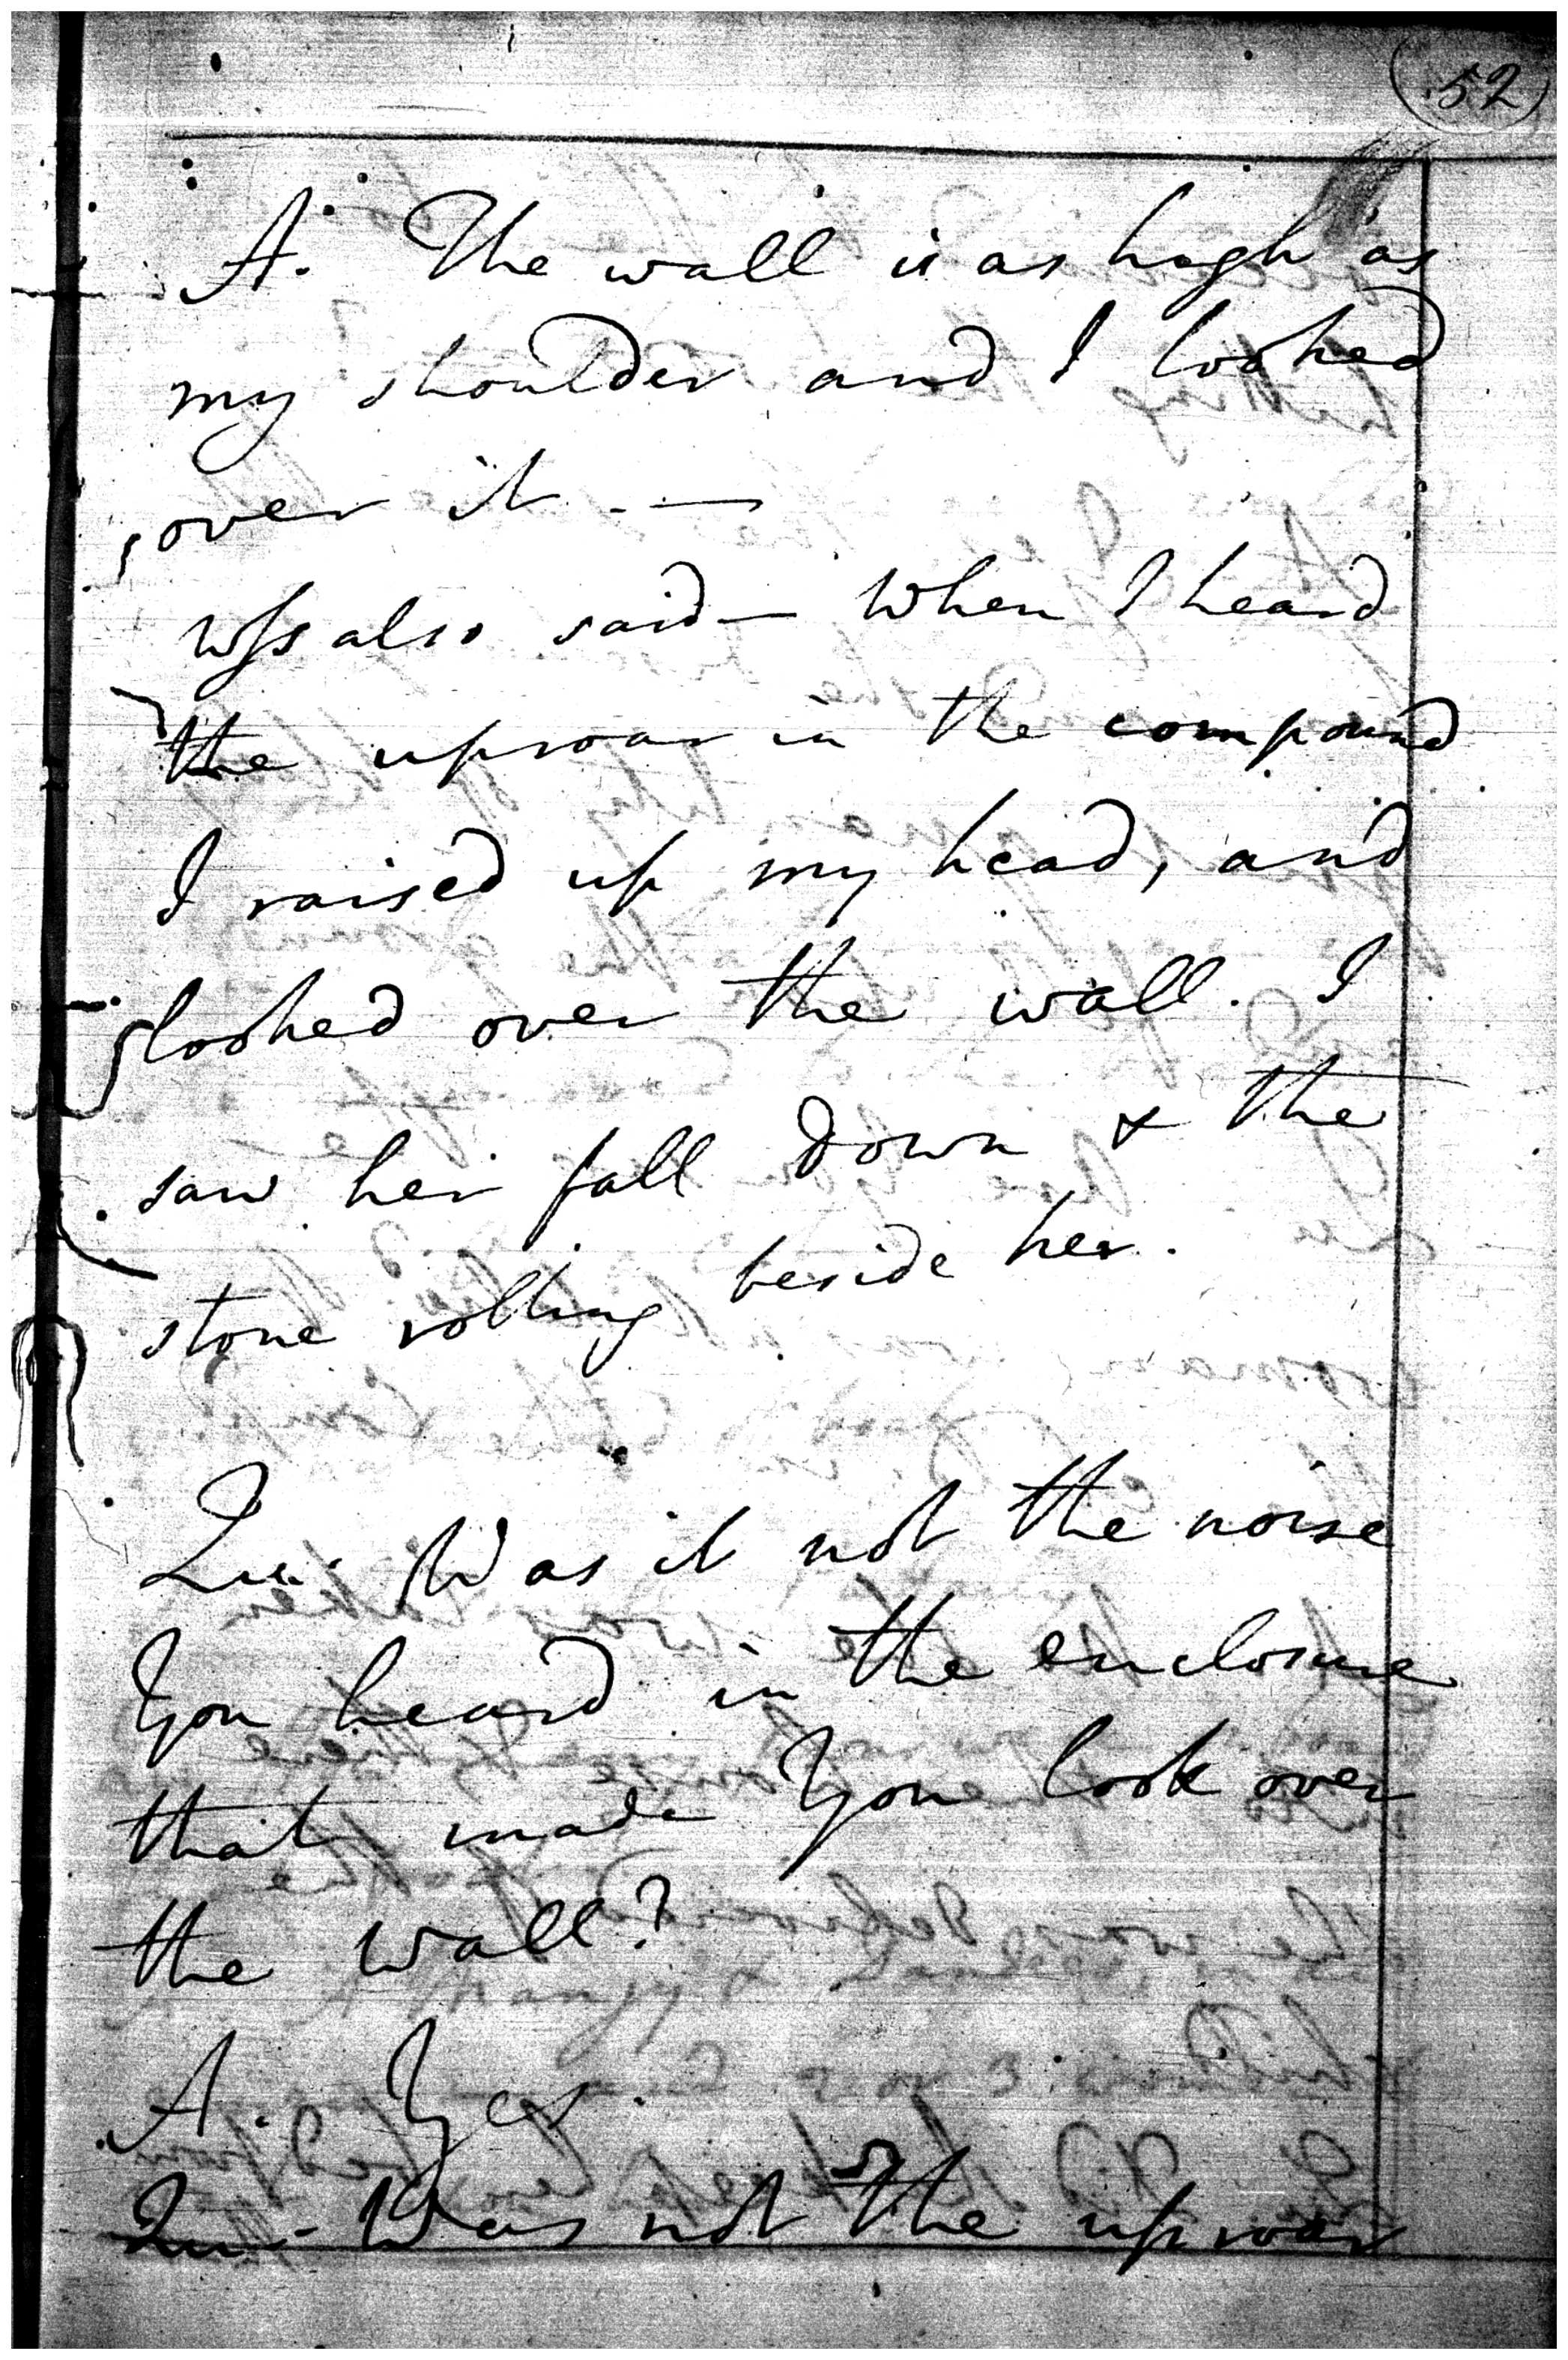 52
A. The wall is as high as
my shoulder and I looked
over it —
Wss also said — When I heard
the uproar in the compound
I raised up my head, and
looked over the wall. I
saw her fall down & the
stone rolling beside her.
Qu. Was it not the noise
You heard in the enclosure
that made You look over
the wall?
A. Yes.
Qu. Was not the uproar